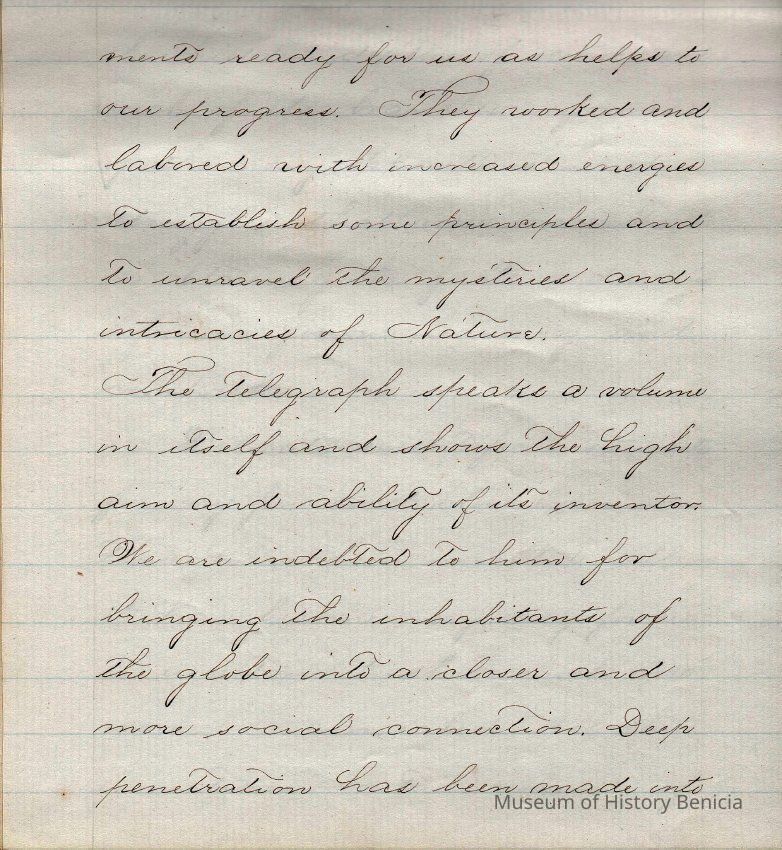 ments ready for us as helps to
our progress. They worked and
labored with increased energies
to establish some principles and
to unravel the mysteries and
intricacies of Nature.
The Telegraph speaks a volume
in itself and shows the high
aim and ability of its inventor.
We are indebted to him for
bringing the inhabitants of
the globe into a closer and
more social connection. Deep
penetration has been made into
Museum of History Benicia